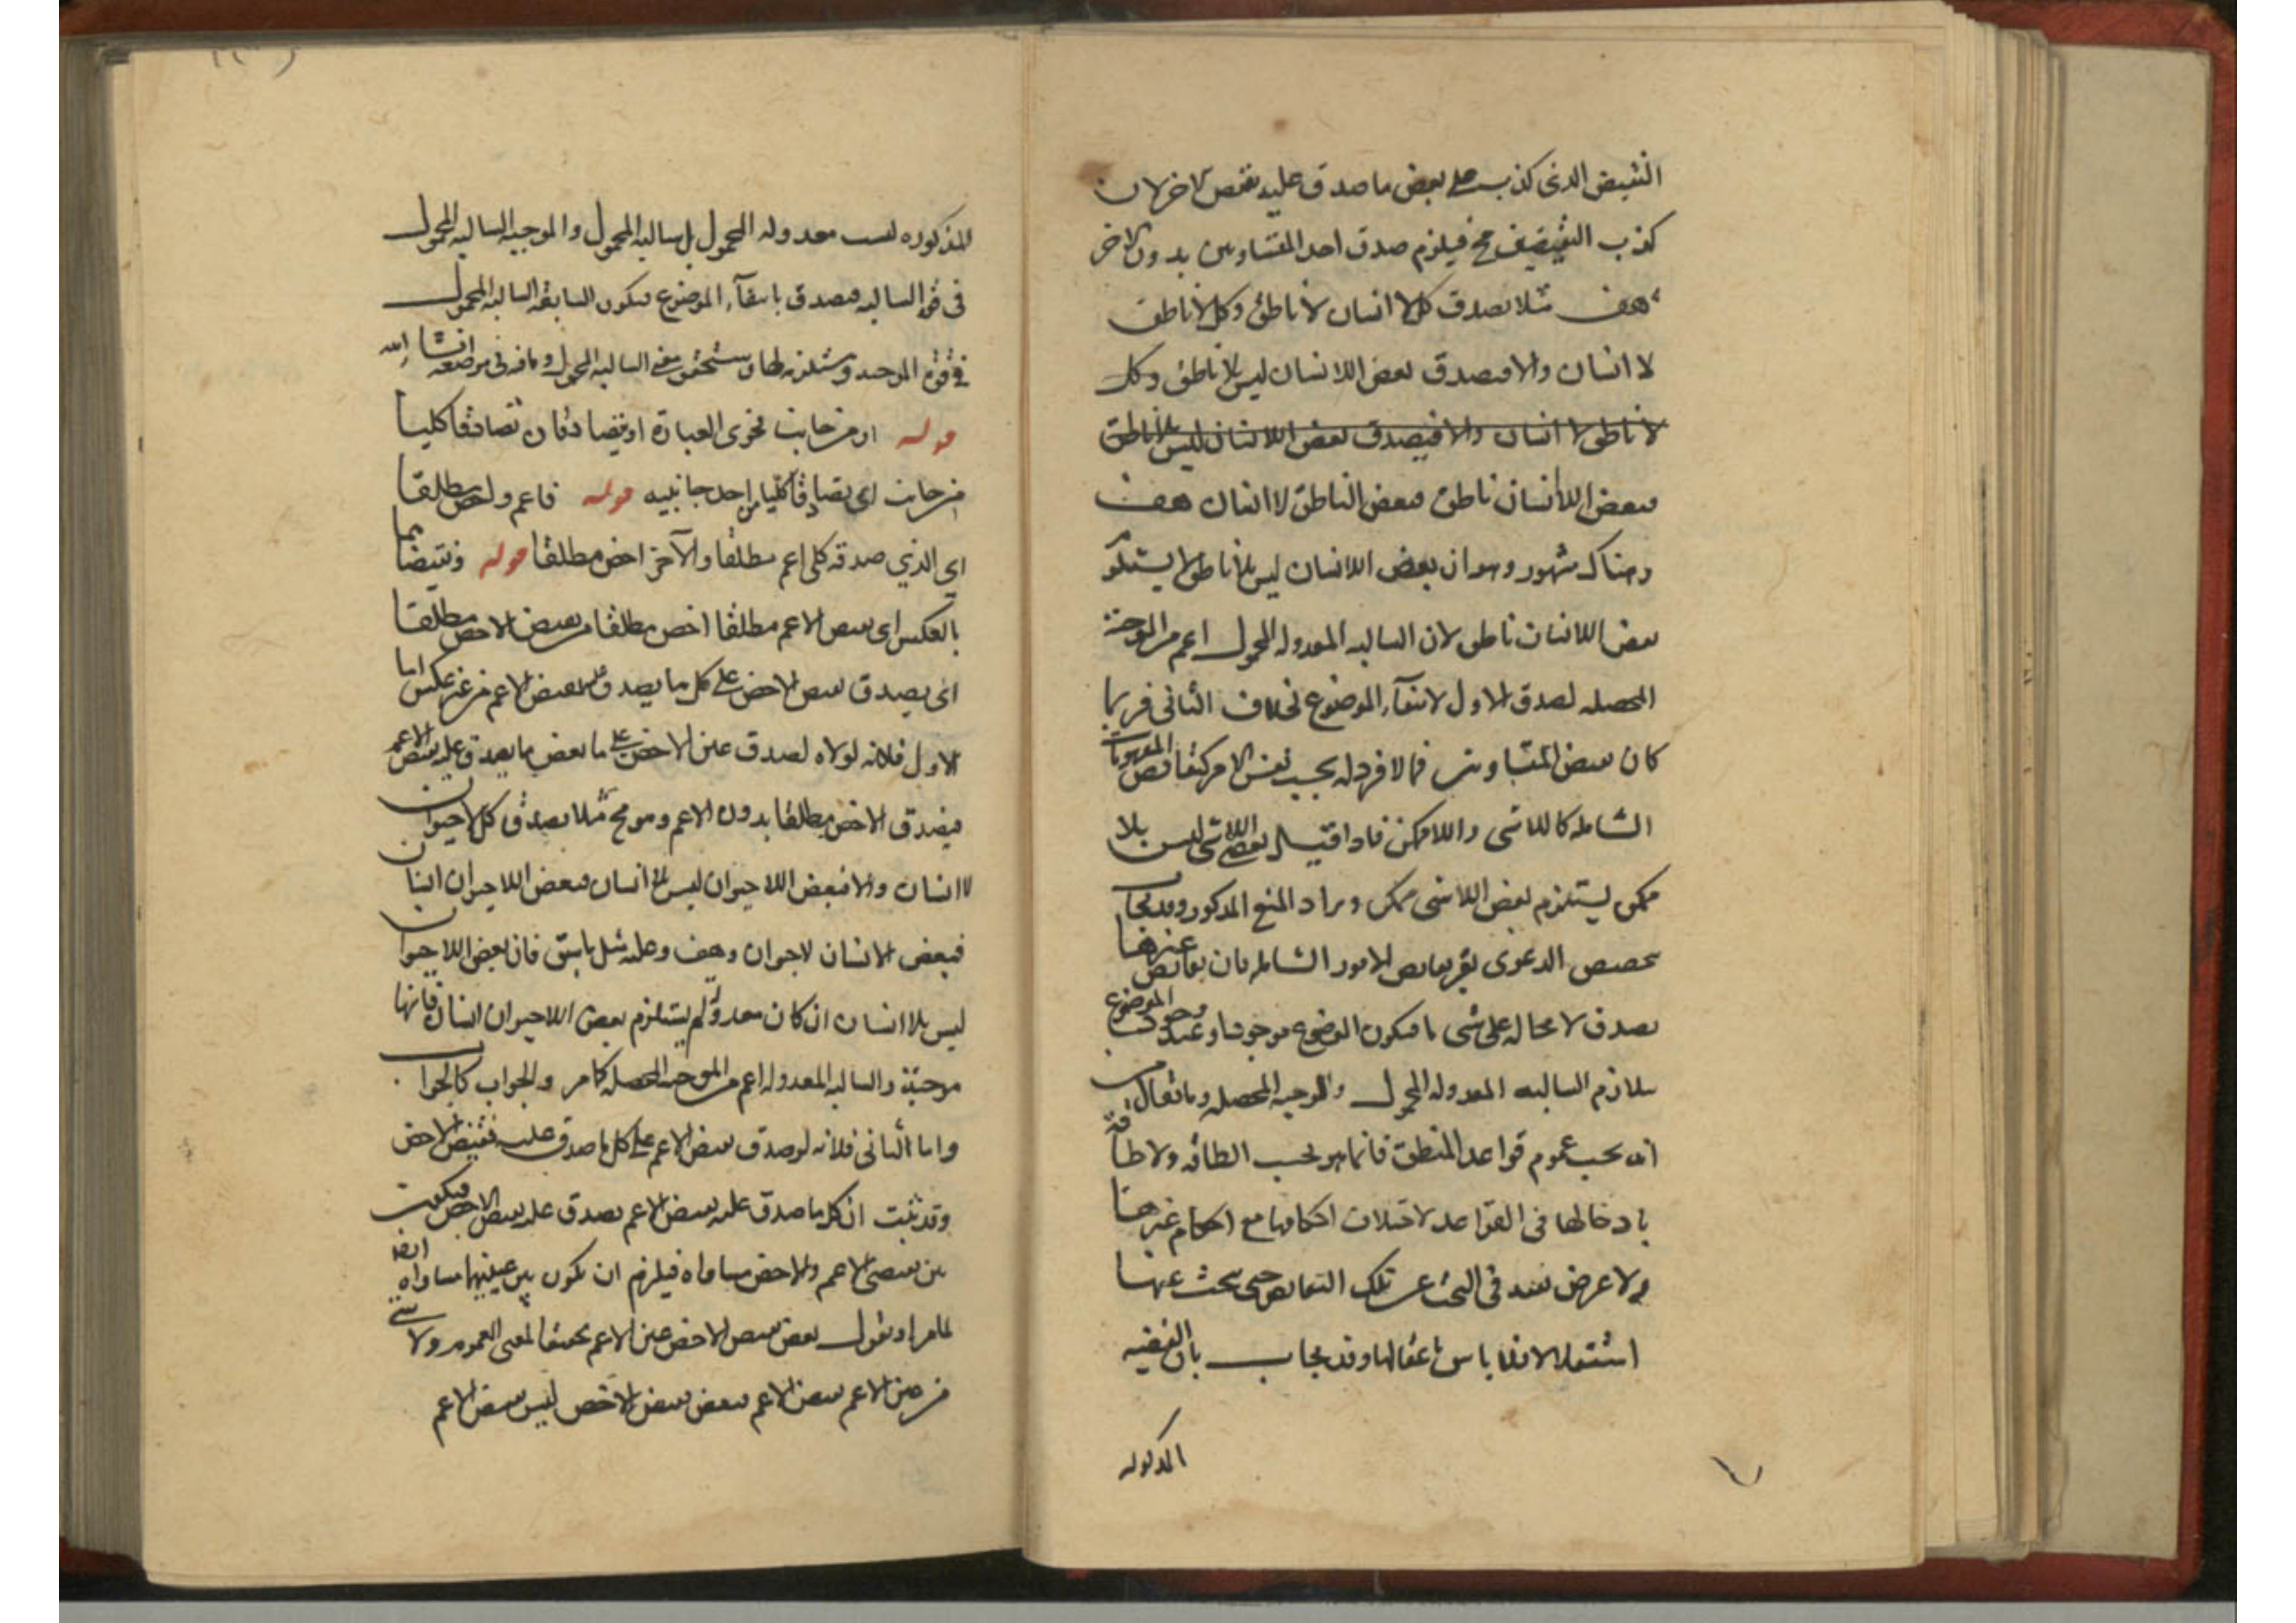 النقيض الذى كذب على بعض ما صدق عليه نقيض الاخر لان
كذب النقيضين مح فيلزم صدق احد المتساويين بدون الاخر
هف مثلا يصدق كل لا انسان لا ناطق وكل لا ناطق
لا انسان والا فيصدق بعض اللا انسان ليس بلا ناطق وكل
لا ناطق لا انسان والا فيصدق بعض اللا انسان ليس بلا ناطق
فبعض اللا انسان ناطق فبعض الناطق لا انسان هف
وهناك مشهور وهو ان بعض اللا انسان ليس بلا ناطق لا يستلزم
بعض اللا انسان ناطق لان السالبه المعدوله المحمول اعم من الموجبة
المحصله لصدق الاول لانتفآء الموضوع بخلاف الثانى فربما
كان نقيض المتساويين مما لا فرد له بحسب نفس الامر كنقائض المفهومات
الشامله كاللا شى واللا ممكن فاذا قيل بعض اللا شى ليس بلا
ممكن يستلزم بعض اللا شى ممكن و يراد المنع المذكور وقد يجاب
بتخصيص الدعوى بغير نقايض الامور الشامله فان نقايض غيرها
يصدق لا محاله على شى ما فيكون الموضوع موجودا وعند وجود الموضوع
يتلازم السالبه المعدوله المحمول والموجبه المحصله وما يقال من
انه يجب عموم قواعد المنطق فانما هو بحسب الطاقه ولا طاقة
بادخالها فى القواعد لاختلاف احكامها مع احكام غيرها
ولا غرض يعتد فى البحث عن تلك النقايض حتى يبحث عنها
استقلالا فلا باس باغفالها وقد يجاب بان القضيه
المذكوره
المذكوره ليست معدوله المحمول بل سالبه المحمول والموجبه السالبه المحمول
فى قوه السالبه فيصدق بانتفآء الموضوع فيكون السابقه السالبه المحمول
فى قوة الموجبه ومستلزمه لها وستحقق معنى السالبه المحمول وما فيه فى موضعه انشا الله
قوله او من جانب فحوى العبارة او يتصادقان تصادقا كليا
من جانب اى تصادقا كليا من احد جانبيه قوله فاعم واخص مطلقا
اى الذي صدقه كلى اعم مطلقا والآخر اخص مطلقا قوله ونقيضاهما
بالعكس اى نقيض الاعم مطلقا اخص مطلقا من نقيض الاخص مطلقا
اى يصدق نقيض الاخص على كل ما يصدق عليه نقيض الاعم من غير عكس اما
الاول فلانه لولاه لصدق عين الاخص على ما بعض ما يصدق عليه نقيض الاعم
فيصدق الاخص مطلقا بدون الاعم وهو مح مثلا يصدق كل لا حيوان
لا انسان والا فبعض اللا حيوان ليس بلا انسان فبعض اللا حيوان انسان
فبعض الانسان لا حيوان وهف وعليه مثل ما سبق فان بعض اللا حيوان
ليس بلا انسان ان كان معدولة لم يستلزم بعض اللا حيوان انسان فانها
موجبة والسالبه المعدوله اعم من الموجبه المحصله كما مر والجواب كالجواب
واما الثانى فلانه لو صدق نقيض الاعم على كل ما صدق عليه نقيض الاخص
وقد ثبت ان كل ما صدق عليه نقيض الاعم يصدق عليه نقيض الاخص فيكون
بين نقيضى الاعم والاخص مساواه فيلزم ان يكون بين عينيهما مساواه ايضا
لما مر او نقول بعض نقيض الاخص عين الاعم تحقيقا لمعنى العموم ولا شى
من عين الاعم نقيض الاعم فبعض نقيض الاخص ليس نقيض الاعم